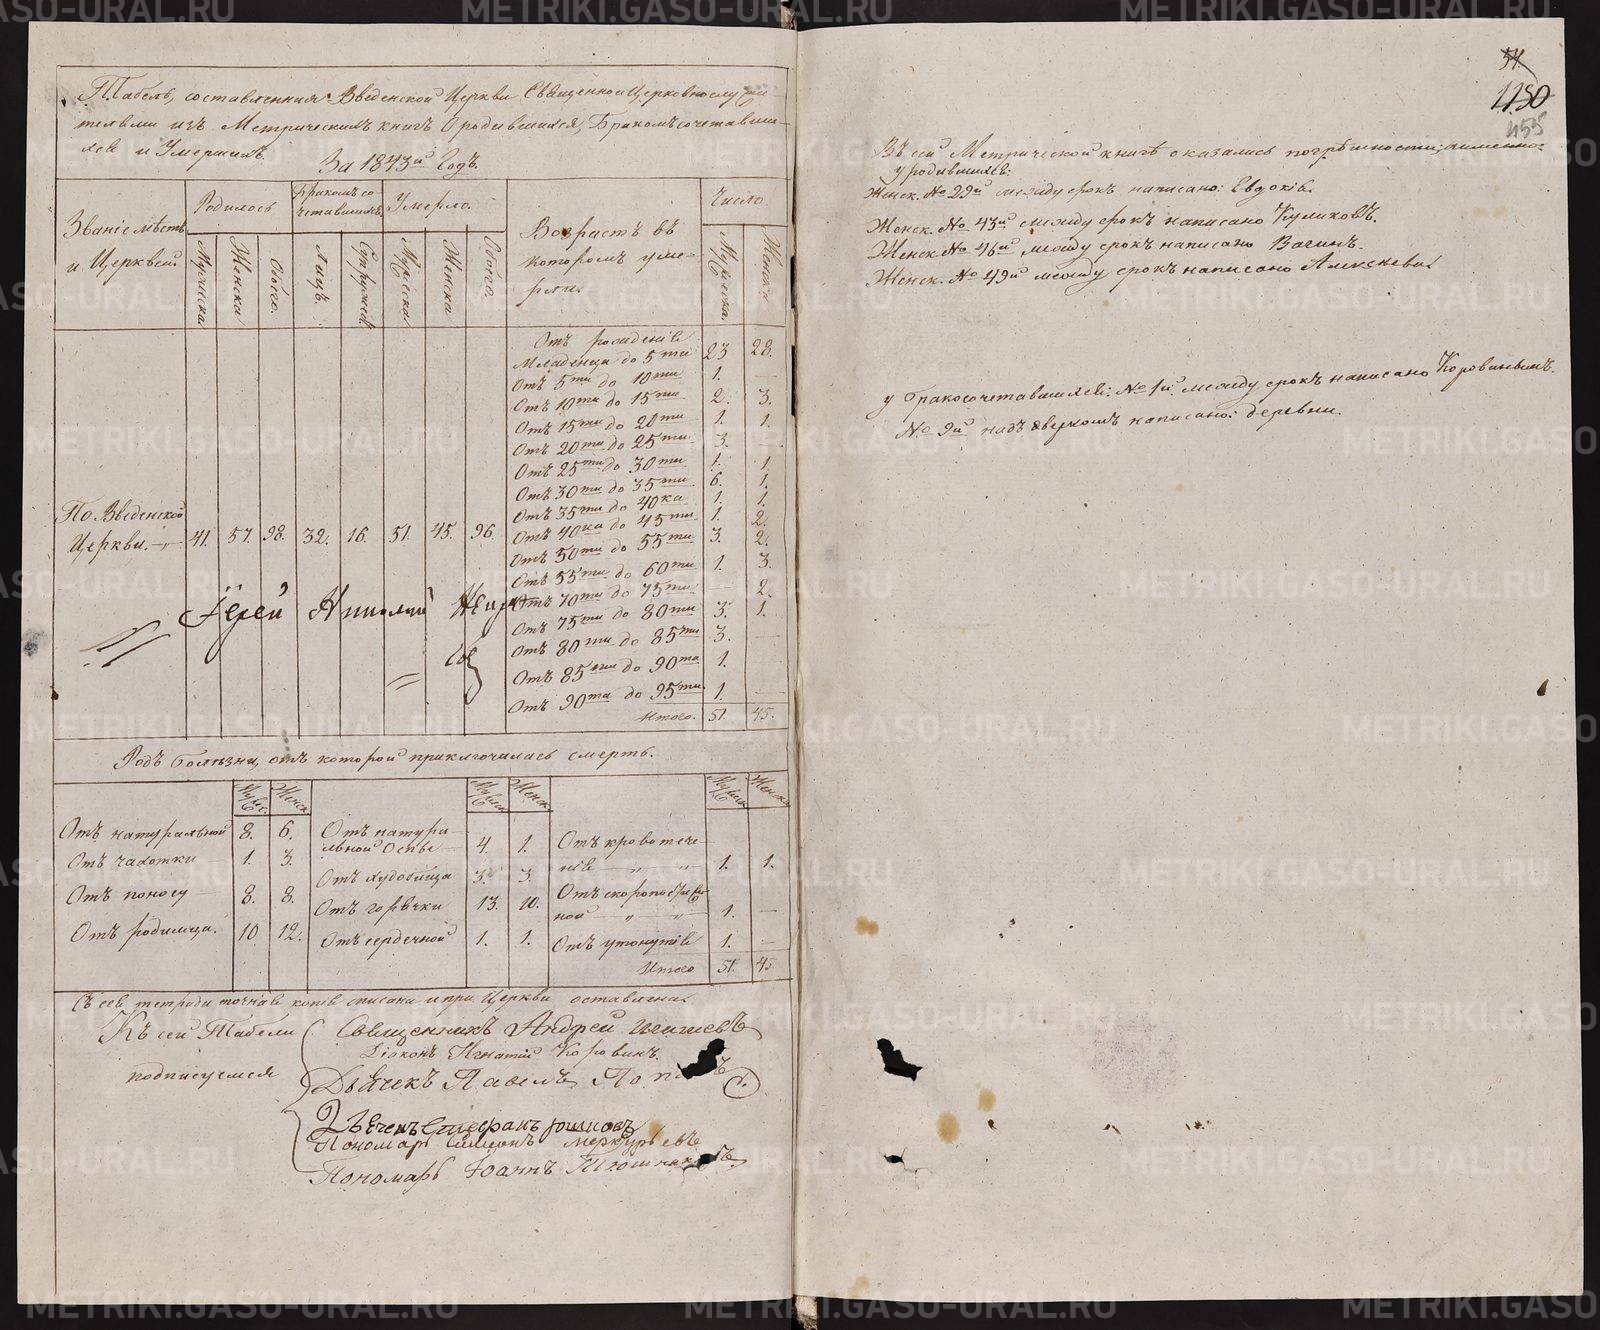 Табель, составленная Введенской Церкви Священноцерковнослужи
тельми изъ Метрическихъ книгъ О родившихся, Бракомъ сочетавших
ся и Умершихъ.
За 1843й Годъ.
Званіе мѣстъ и Церквей.
Родилось
Мужеска
Женска
Обоего.
Бракомъ со
четавшихся
Лицъ.
Супружеств
Умерло.
Мужеска
Женска
Обоего.
Возрастъ въ
которомъ уме-
рли.
Число.
Мужеска.
Женска
По Введенской
Церкви. 41. 57. 98. 32. 16. 51. 45. 96
Отъ рожденія
Младенца до 5ти 23 28.
Отъ 5ти до 10ти 1. —
Отъ 10ти до 15ти 2. 3.
Отъ 15ти до 20ти 1. 1.
Отъ 20ти до 25ти 3. —
Отъ 25ти до 30ти 1. 1.
Отъ 30ти до 35ти 6. 1.
Отъ 35ти до 40ка 1. 1.
Отъ 40ка до 45ти 1. 2.
Отъ 50ти до 55ти 3. 2.
Отъ 55ти до 60ти 1. 3.
Отъ 70ти до 75ти 2.
Отъ 75ти до 80ти 3. 1.
Отъ 80ти до 85ти 3. —
Отъ 85ти до 90та 1.
Отъ 90та до 95ти 1. —
Итого. 51. 45.
Іерей Николай
Родъ болѣзни, отъ которой приключилась смерть.
Мужеск Женск Мужеск Женск Мужеск Женск
Отъ натуральной 8. 6.
Отъ чахотки 1. 3.
Отъ поносу 8. 8.
Отъ родимца. 10 12.
Отъ натура-
льной Оспы 4. 1.
Отъ худобища 3. 3.
Отъ горячки 13. 10.
Отъ сердечной 1. 1.
Отъ кровотече-
нія „ „ 1. 1.
Отъ скоропостиж
ной „ „ 1. —
Отъ утонутія 1. —
Итого 51. 45
Съ сей тетради точная копія списана и при Церкви оставлена.
Къ сей Табели
подписуемся
Священникъ Андрей
Діаконъ Игнатій Коровинъ.
Дьячекъ Павелъ
Дьячекъ Стефанъ
Пономарь Симеонъ Меркурьевъ
Пономарь Іоаннъ
54
1130
455
Въ сей Метрической книгѣ оказались погрѣшности; а именно:
у родившихся:
Женск. № 29й между строкъ написано: Евдокія.
Женск. № 43й между строкъ написано Куликовъ.
Женск № 46й между строкъ написано Вагинъ.
Женск. № 49й между строкъ написано Алексѣева
у бракосочетавшихся: № 1й между строкъ написано Коровинымъ.
№ 9й надъ верхомъ написано: деревни.
METRIKI.GASO-URAL.RU